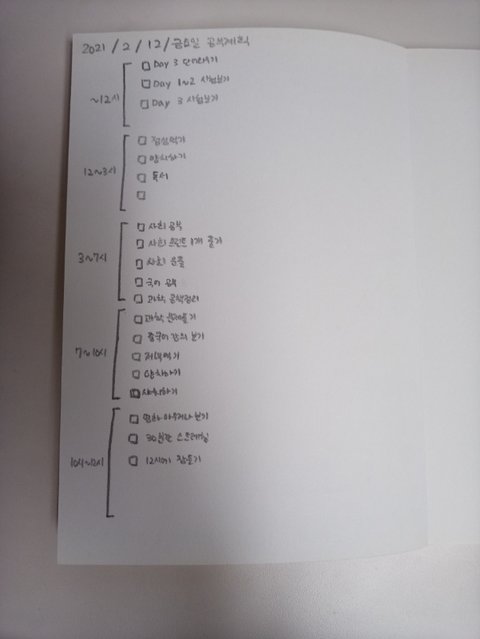 2021 / 2 / 12 / 금요일 공부계획
~12시
Day 3 단어외우기
Day 1~2 시험보기
Day 3 시험보기
12~3시
점심먹기
양치하기
독서
3~7시
사회 공부
사회 프린트 1개 풀기
사회
국어 공부
과학 공책정리
7~10시
과학 문제풀기
중국어 강의 보기
저녁먹기
양치하기
샤워하기
10시~12시
영화 아무거나 보기
30분간 스트레칭
12시에 잠들기